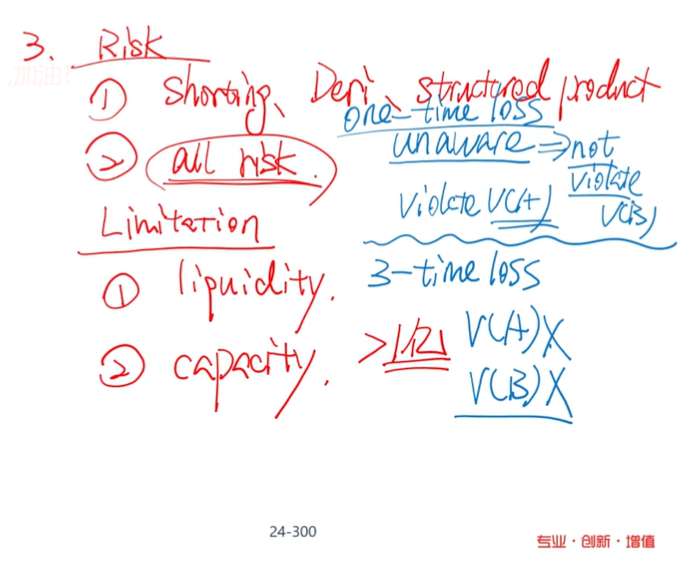 3. Risk
① Shorting、Deri、structured product
② all risk.
Limitation
① liquidity.
② capacity. >1亿
one-time loss
unaware ⇒ not
violate
V(B)
violate V(A)
3-time loss
V(A) X
V(B) X
24-300
专业·创新·增值